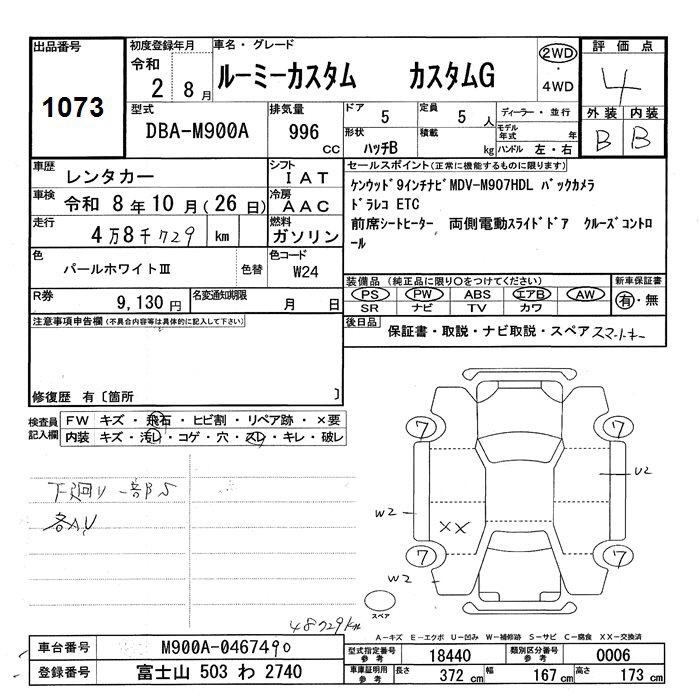 出品番号
1073
初度登録年月
令和
2 8月
車名・グレード
ルーミーカスタム カスタムG
2WD
・
4WD
評価点
4
外装 内装
B B
型式
DBA-M900A
排気量
996
cc
ドア
5
定員
5 人
形状
ハッチB
積載
kg
ディーラー・並行
モデル年式 年
ハンドル 左・右
車歴
レンタカー
シフト
IAT
車検
令和 8年10月(26日)
冷房
AAC
走行
4万8千729 km
燃料
ガソリン
色
パールホワイトⅢ
色替
色コード
W24
R券
9,130円
名変通知期限
月 日
セールスポイント(正常に機能するものに限ります)
ケンウッド9インチナビMDV-M907HDL バックカメラ
ドラレコ ETC
前席シートヒーター 両側電動スライドドア クルーズコントロ
ール
装備品(純正品に限り○をつけてください)
PS PW ABS エアB AW
SR ナビ TV カワ
新車保証書
有・無
後日品
保証書・取説・ナビ取説・スペアスマートキー
注意事項申告欄(不具合内容等は具体的に記入して下さい)
修復歴 有〔箇所 〕
検査員
記入欄
FW キズ・飛石・ヒビ割・リペア跡・×要
内装 キズ・汚レ・コゲ・穴・スレ・キレ・破レ
下廻り一部BS
各A,U
7 7
U2
W2
XX
7 7
W2
スペア
48729km
A-キズ E-エクボ U-凹み W-補修跡 S-サビ C-腐食 XX-交換済
車台番号
M900A-0467490
登録番号
富士山 503 わ 2740
型式指定番号
参考
18440
類別区分番号
参考
0006
車庫証明用
参考
長さ
372 cm
幅
167 cm
高さ
173 cm